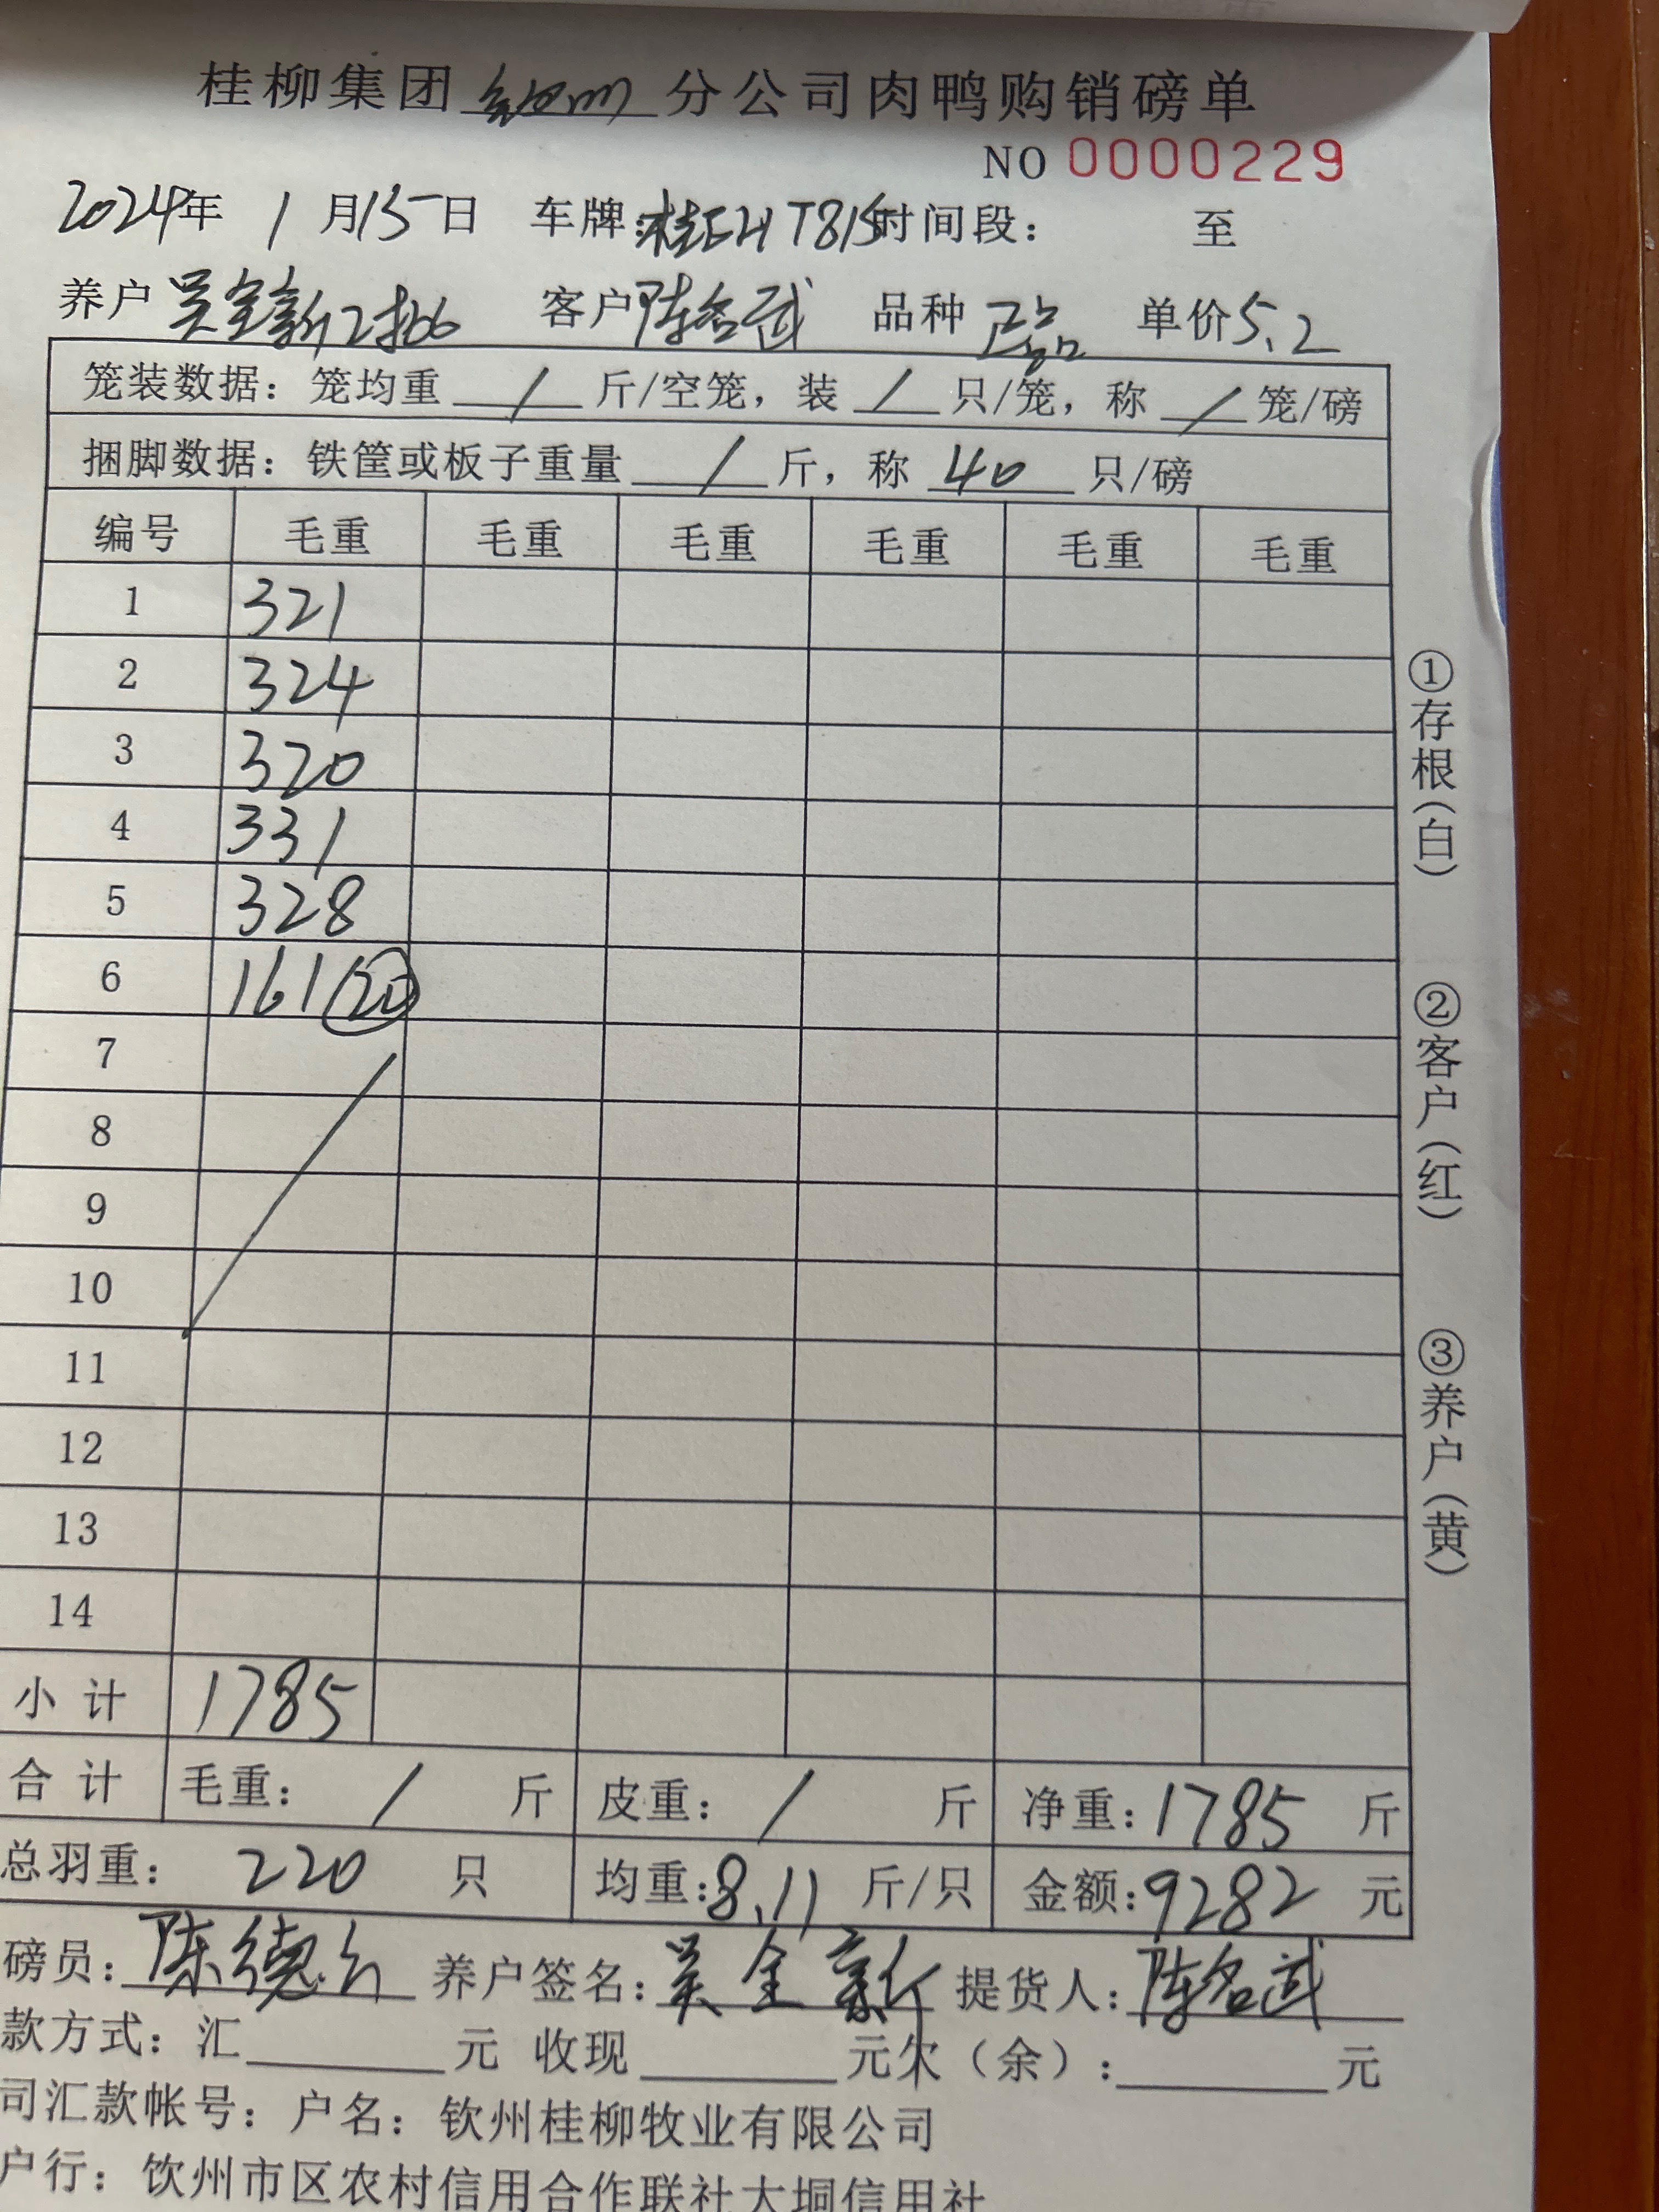 桂柳集团钦州分公司肉鸭购销磅单
NO 0000229
2024年 1月15日 车牌:桂EHT815时间段: 至
养户 吴全新2批 客户陈名武 品种 正品 单价5.2
笼装数据: 笼均重 / 斤/空笼, 装 / 只/笼, 称 / 笼/磅
捆脚数据: 铁筐或板子重量 / 斤, 称 40 只/磅
编号 毛重 毛重 毛重 毛重 毛重 毛重
1 321
2 324
3 320
4 331
5 328
6 161/20
7
8
9
10
11
12
13
14
小计 1785
合计 毛重: / 斤 皮重: / 斤 净重:1785 斤
总羽重: 220 只 均重:8.11 斤/只 金额:9282 元
磅员: 陈德 养户签名: 吴全新 提货人: 陈名武
款方式: 汇 元 收现 元欠(余): 元
司汇款帐号: 户名: 钦州桂柳牧业有限公司
户行: 钦州市区农村信用合作联社大垌信用社
①存根(白)
②客户(红)
③养户(黄)